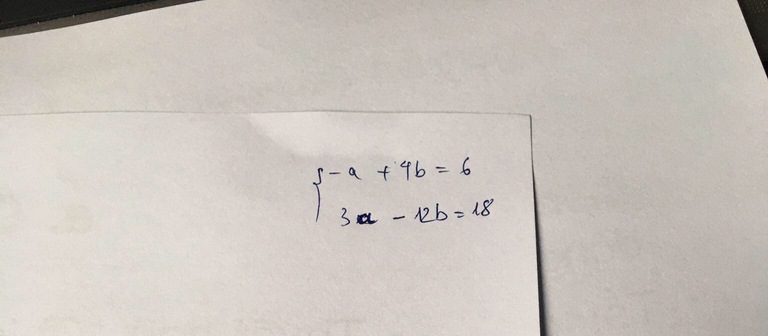 { - a + 4b = 6
3a - 12b = 18